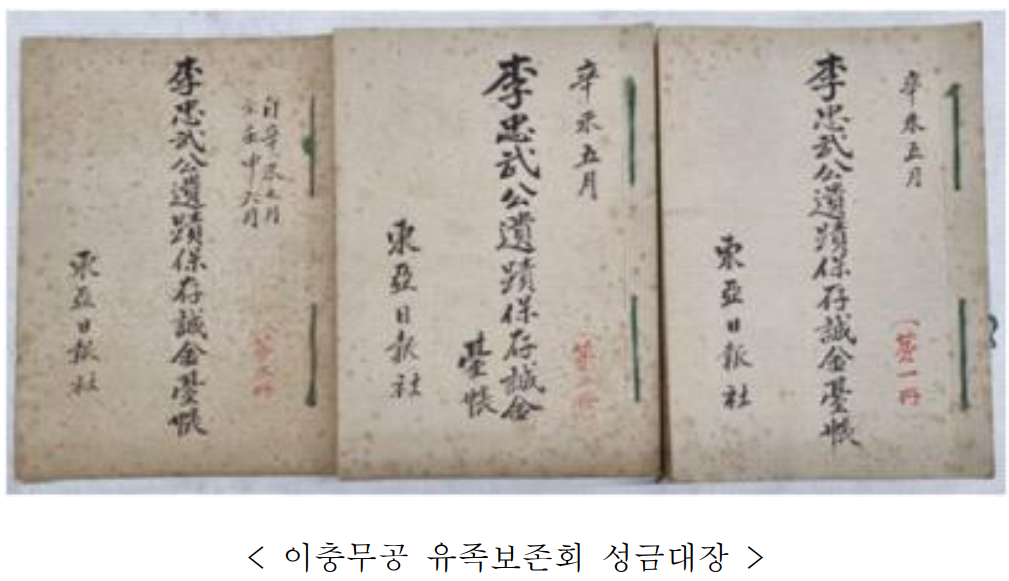 辛未五月
第一冊
李忠武公遺蹟保存誠金臺帳
東亞日報社
辛未五月
第二冊
李忠武公遺蹟保存誠金
臺帳
東亞日報社
自辛未五月
至壬申六月
第三冊
李忠武公遺蹟保存誠金臺帳
東亞日報社
< 이충무공 유족보존회 성금대장 >